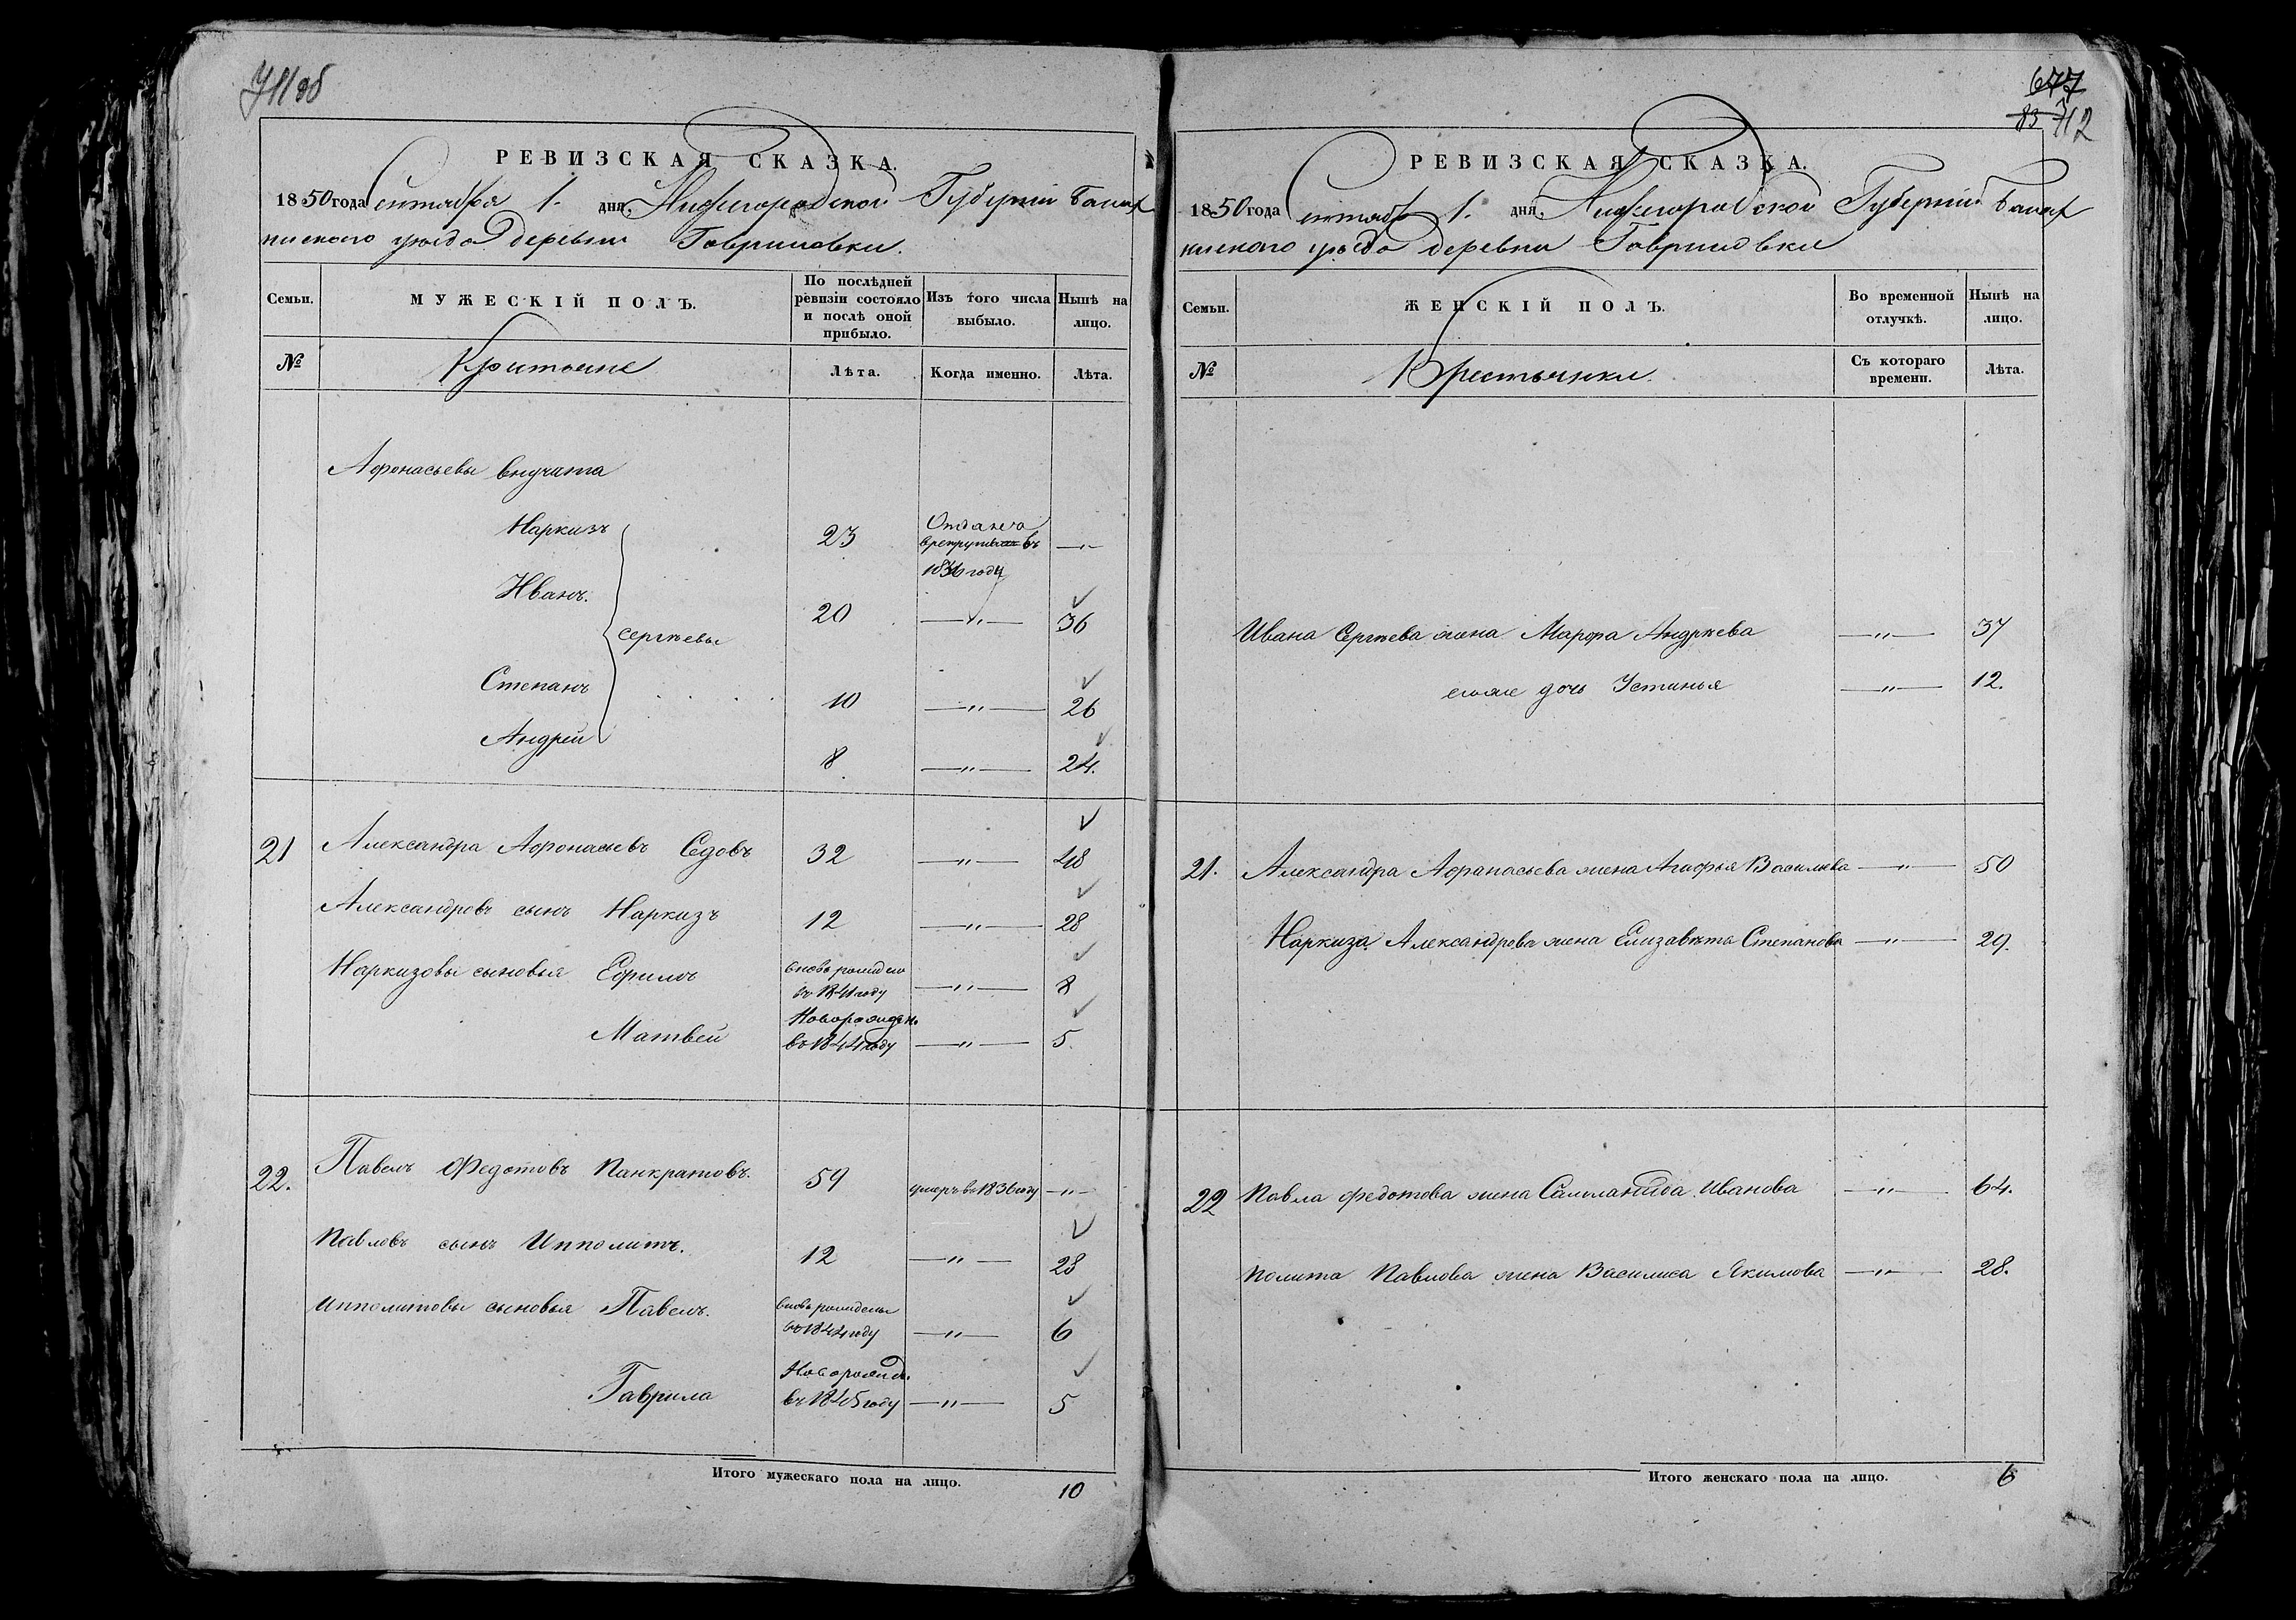 711 об
РЕВИЗСКАЯ СКАЗКА.
1850 года Сентября 1. дня, Нижегородской Губернии Балах
нинскаго уезда деревни Гавриловки.
Семьи.
МУЖЕСКІЙ ПОЛЪ.
По послѣдней ревизіи состояло и послѣ оной прибыло.
Изъ того числа выбыло.
Нынѣ на лицо.
№
Крестьяне
Лѣта.
Когда именно.
Лѣта.
Афонасьевы внучата
Наркизъ 23 Отданъ в рекруты въ 1836 году —"—
Иванъ. 20 —"— 36
Сергѣевы
Степанъ 10 —"— 26
Андрей 8 —"— 24.
21 Александра Афонасьевъ Седовъ 32 —"— 48
Александровъ сынъ Наркизъ 12 —"— 28
Наркизовы сыновья Ефимъ вновь рожденъ въ 1841 году —"— 8
Матвей Новорожден. въ 1844 году —"— 5.
22. Павелъ Федотовъ Панкратовъ. 59 умеръ въ 1836 году —"—
Павловъ сынъ Ипполитъ. 12 —"— 28
Ипполитовы сыновья Павелъ. вновь рожденъ въ 1844 году —"— 6
Гаврила Новорожд. въ 1845 году —"— 5
Итого мужескаго пола на лицо. 10
677
83 712
РЕВИЗСКАЯ СКАЗКА.
1850 года Сентября 1. дня, Нижегородской Губернии Балах
нинскаго уезда деревни Гавриловки
Семьи.
ЖЕНСКІЙ ПОЛЪ.
Во временной отлучкѣ.
Нынѣ на лицо.
№
Крестьянки.
Съ котораго времени.
Лѣта.
Ивана Сергѣева жена Марфа Андрѣева —"— 37
его же дочь Устинья —"— 12.
21. Александра Афанасьева жена Агафья Васильева —"— 50
Наркиза Александрова жена Елизавѣта Степанова —"— 29.
22 Павла Федотова жена Саламанида Иванова —"— 64.
Полита Павлова жена Василиса Якимова —"— 28.
Итого женскаго пола на лицо. 6